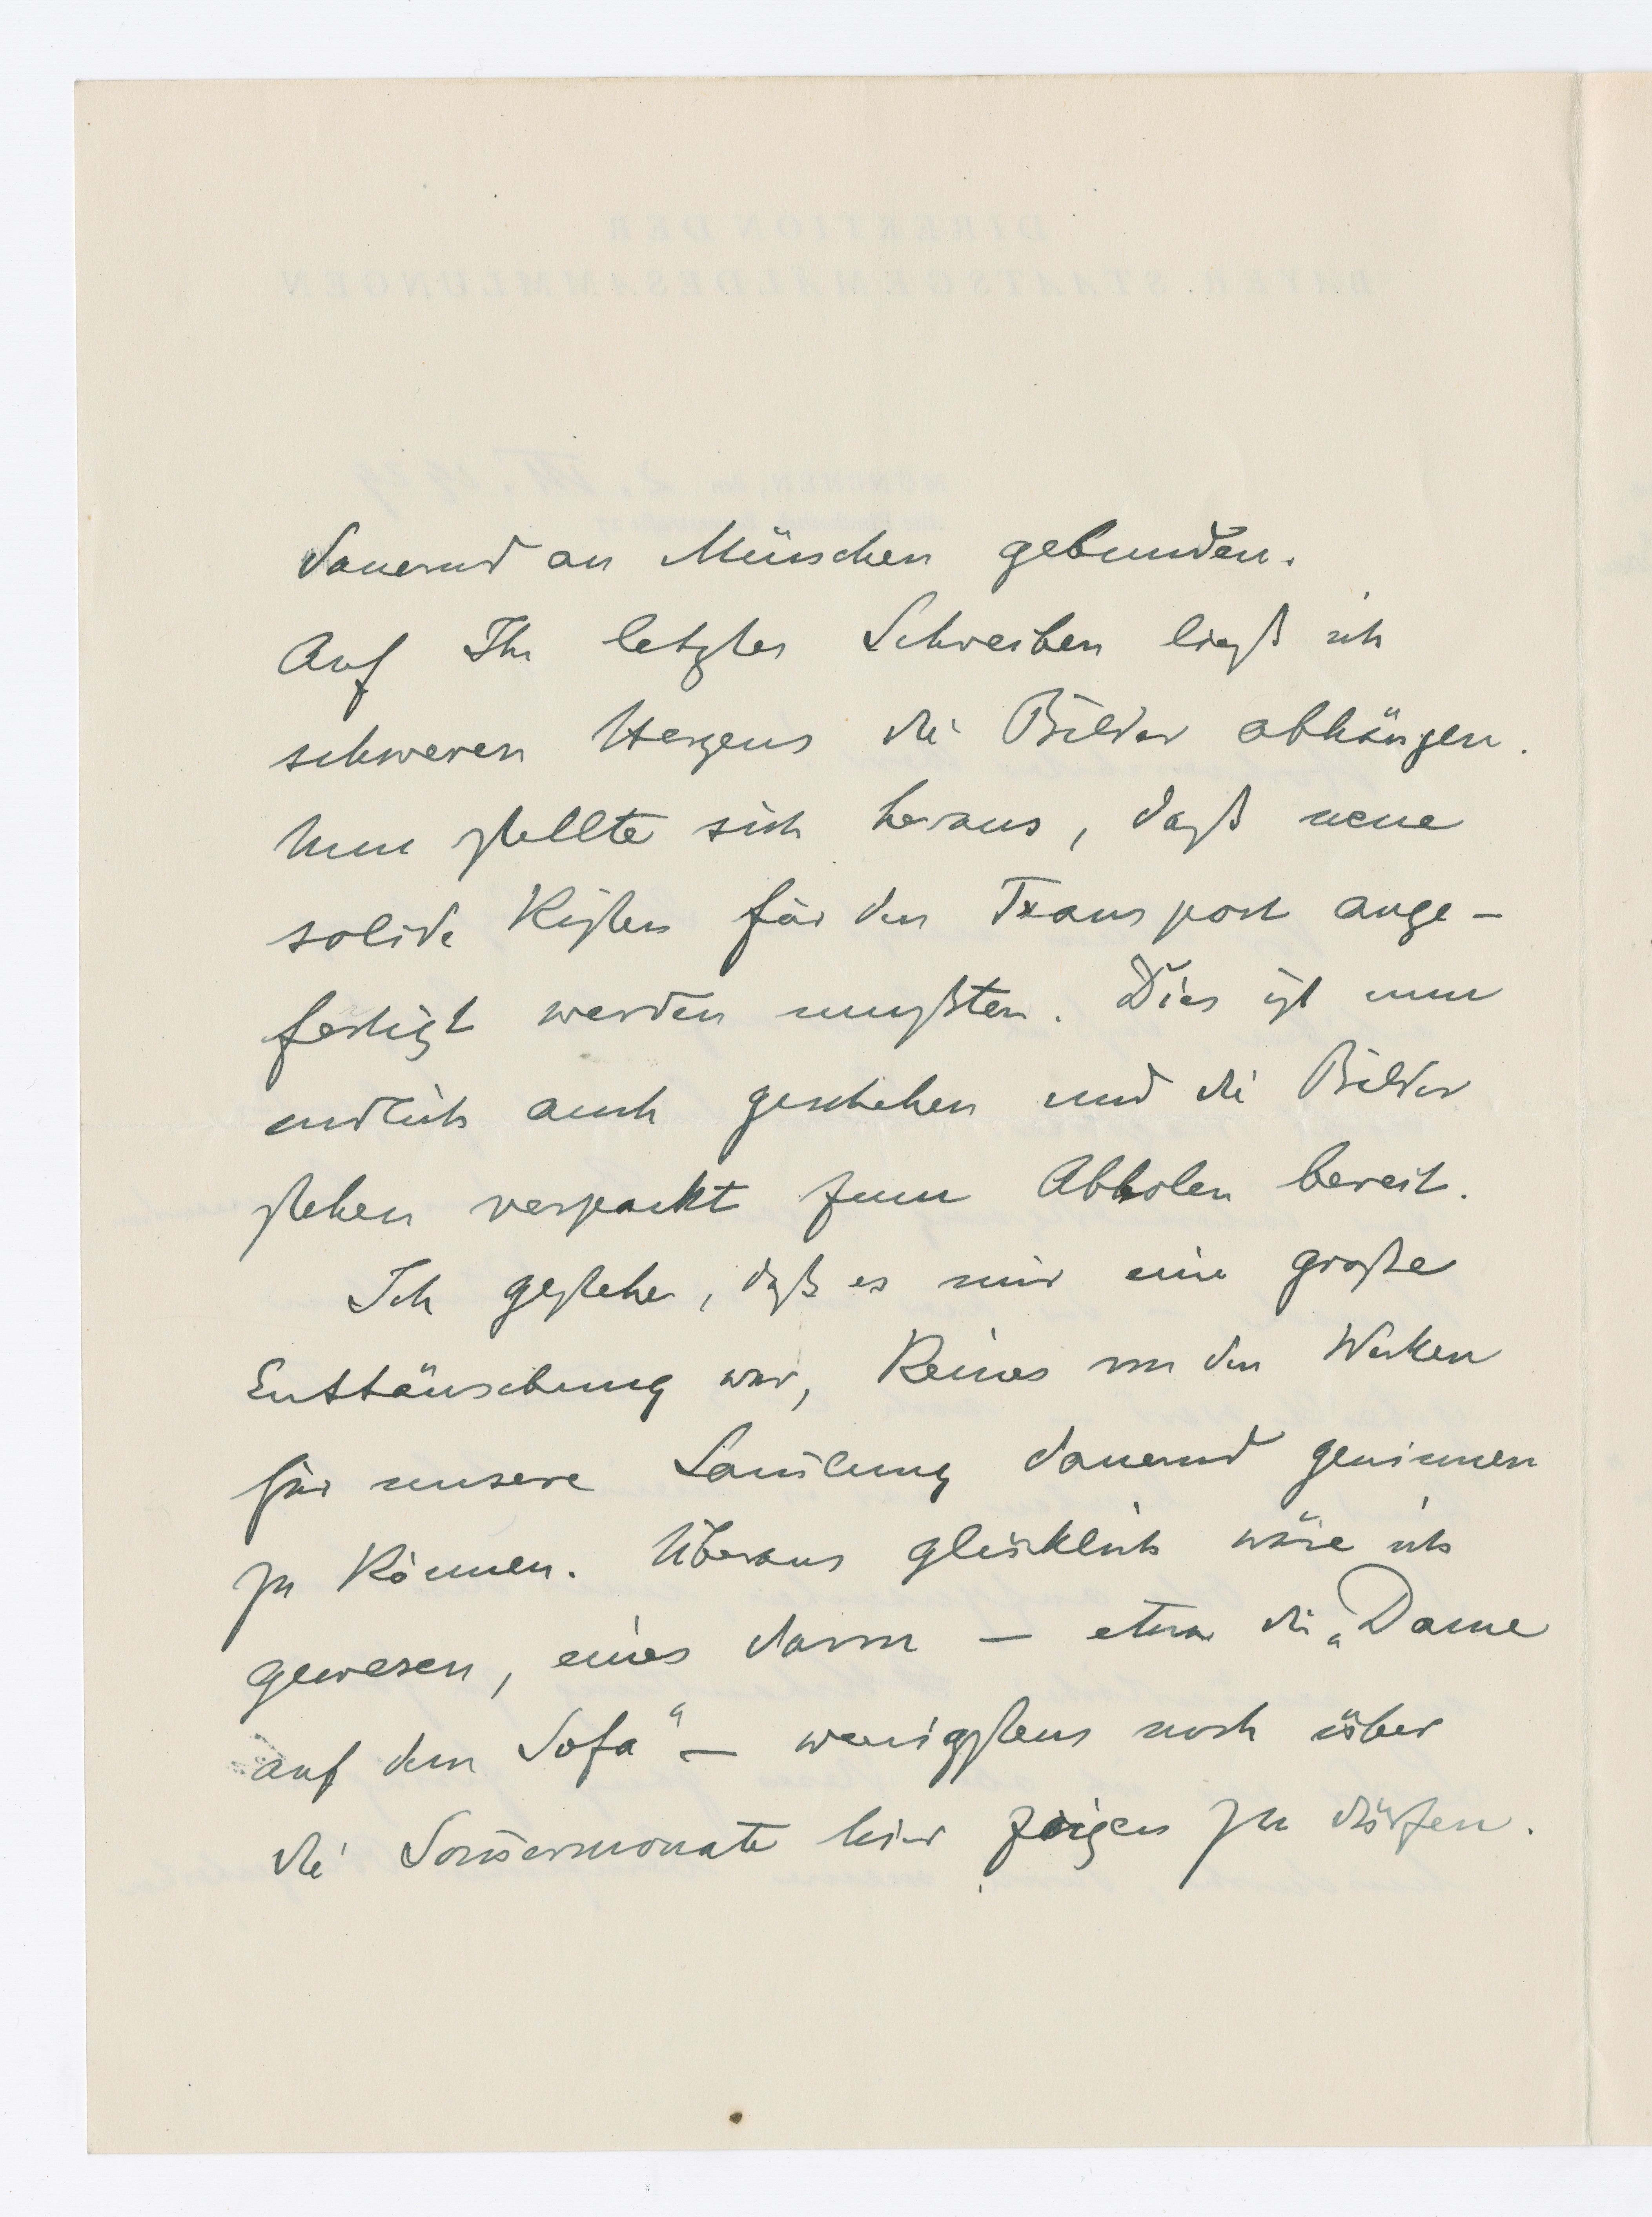 dauernd an München gebunden.
Auf Ihr letztes Schreiben ließ ich
schweren Herzens die Bilder abhängen.
Nun stellte sich heraus, daß neue
solide Kisten für den Transport ange-
fertigt werden mußten. Dies ist nun
endlich auch geschehen und die Bilder
stehen verpackt zum Abholen bereit.
Ich gestehe, daß es mir eine große
Enttäuschung war, keines von den Werken
für unsere Sam̄lung dauernd gewinnen
zu können. Überaus glücklich wäre ich
gewesen, eines davon — etwa die „Dame
auf dem Sofa" — wenigstens noch über
die Som̄ermonate hier zeigen zu dürfen.